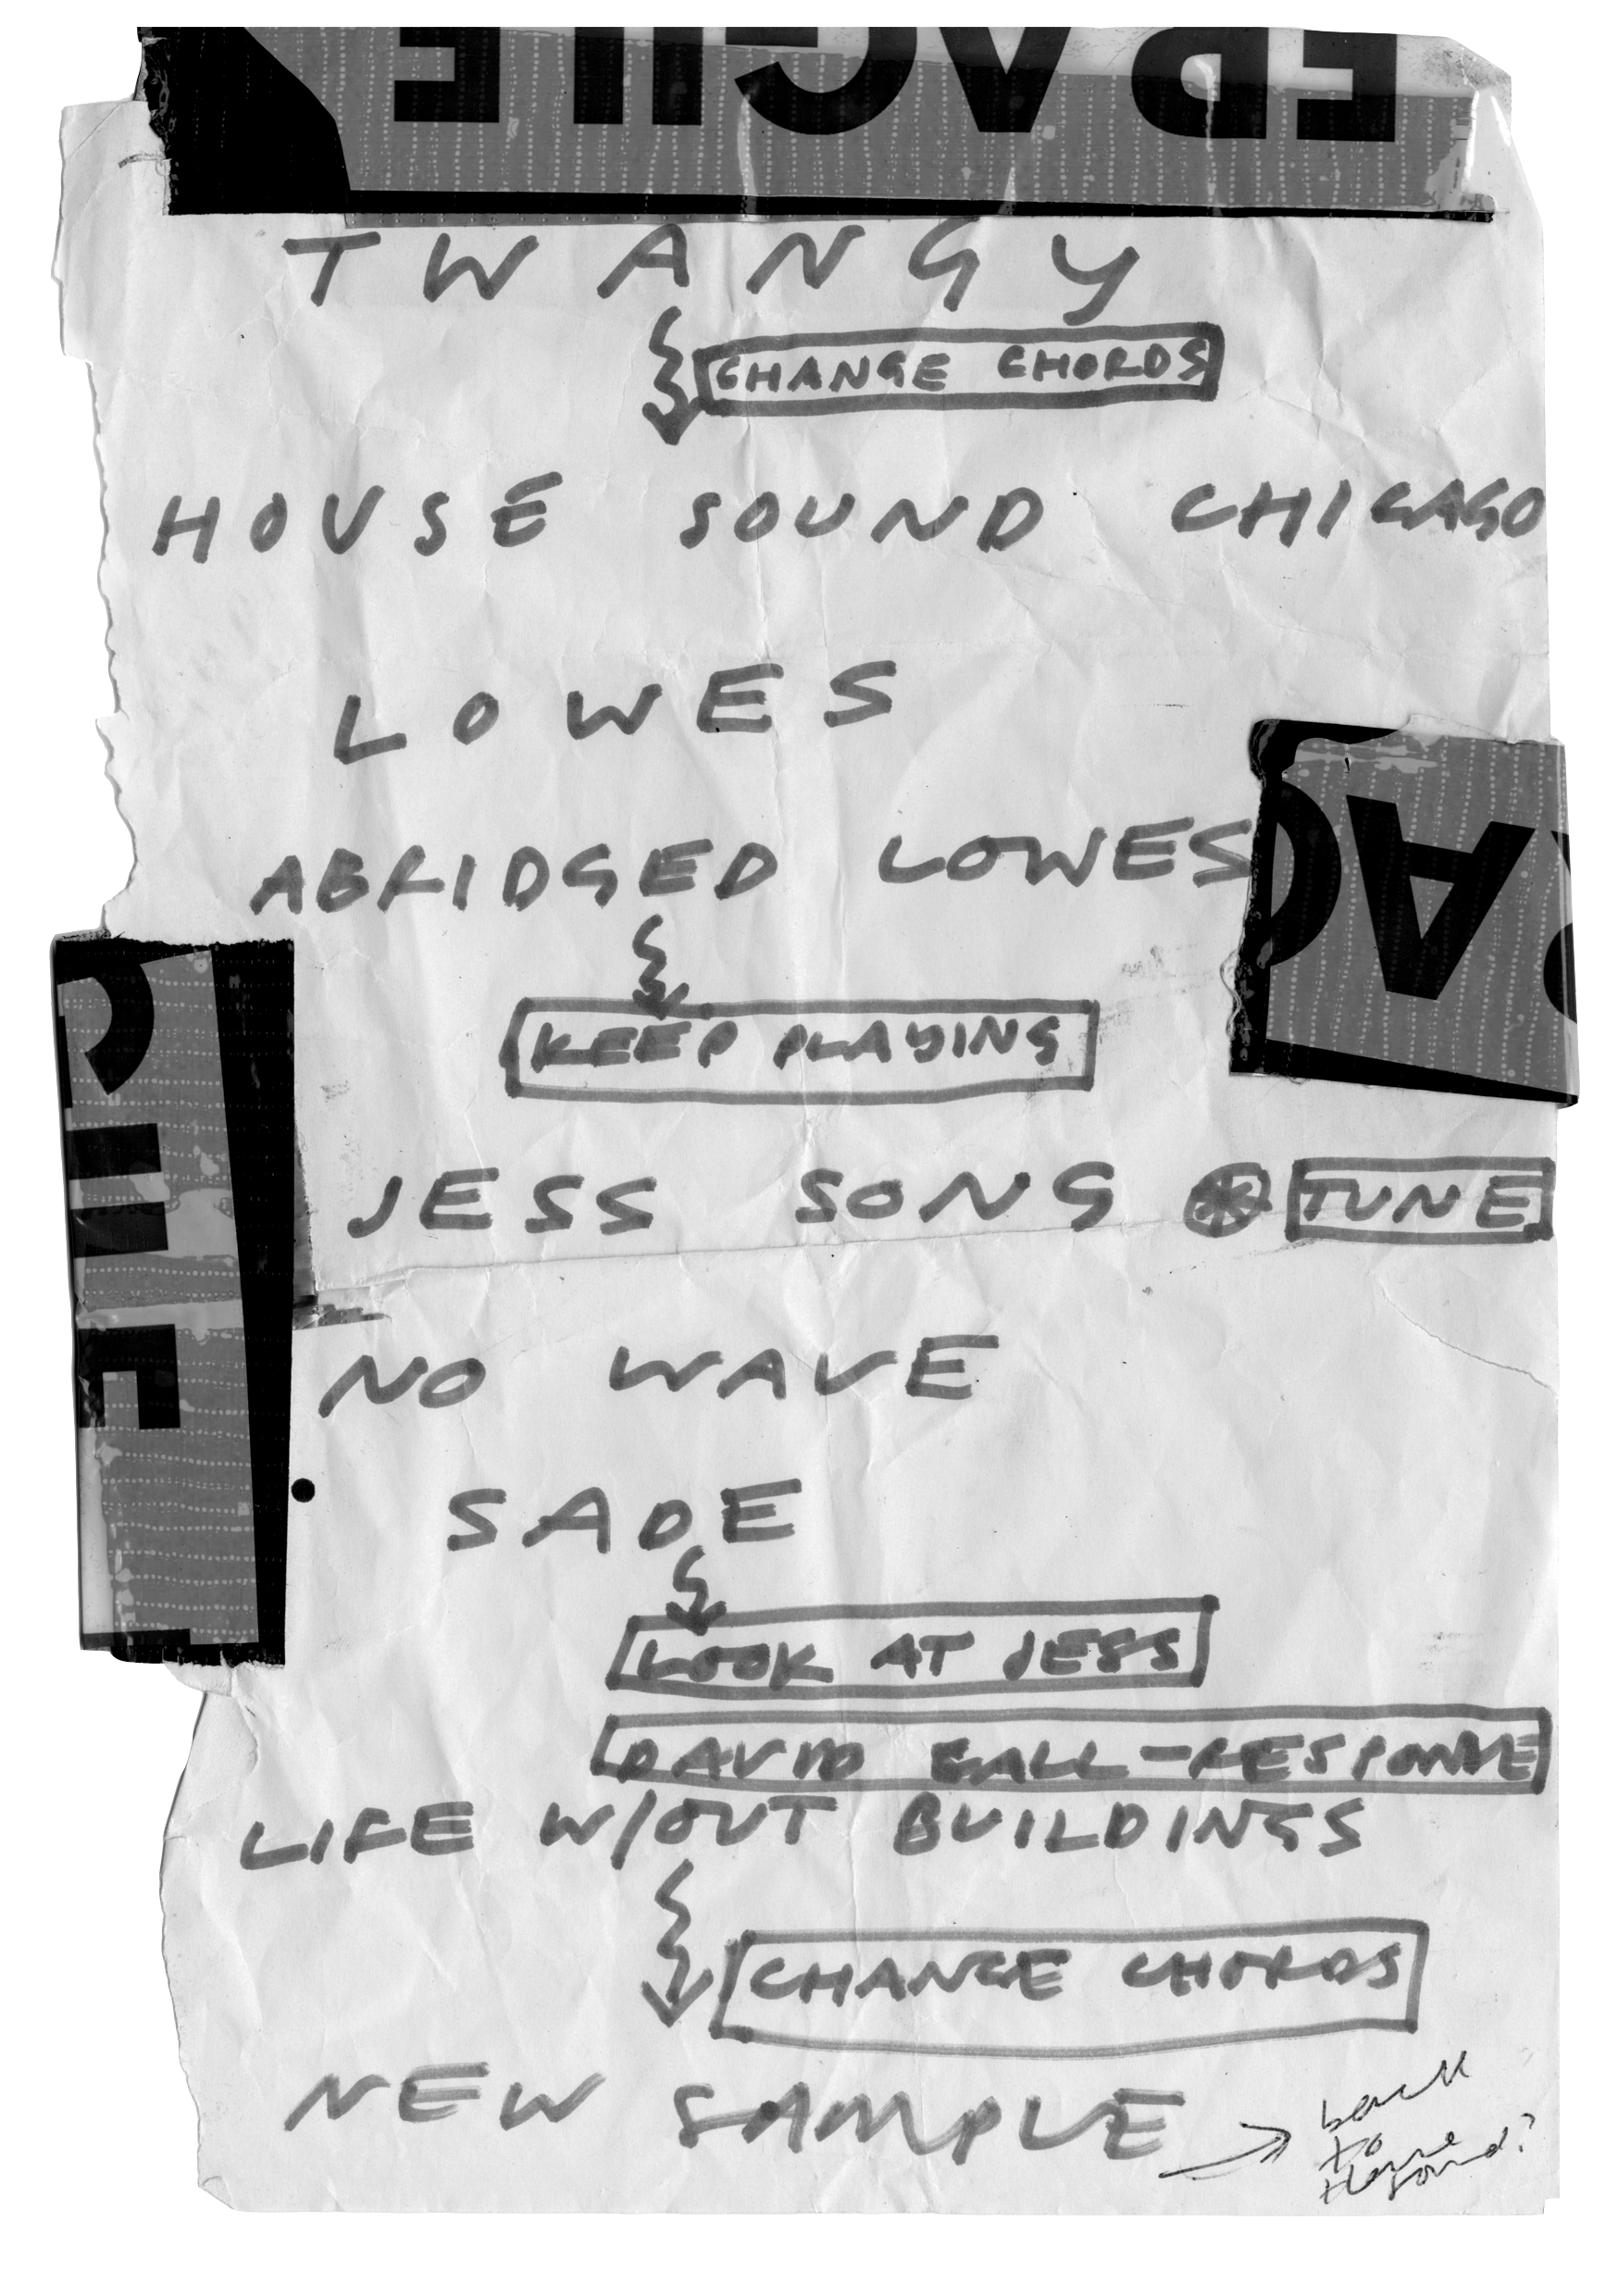 FRAGILE
TWANGY
CHANGE CHORDS
HOUSE SOUND CHICAGO
LOWES
ABRIDGED LOWES
RAG
KEEP PLAYING
GILE
JESS SONG TUNE
NO WAVE
SADE
LOOK AT JESS
DAVID CALL-RESPONSE
LIFE W/OUT BUILDINGS
CHANGE CHORDS
NEW SAMPLE
back
to
House
sound?